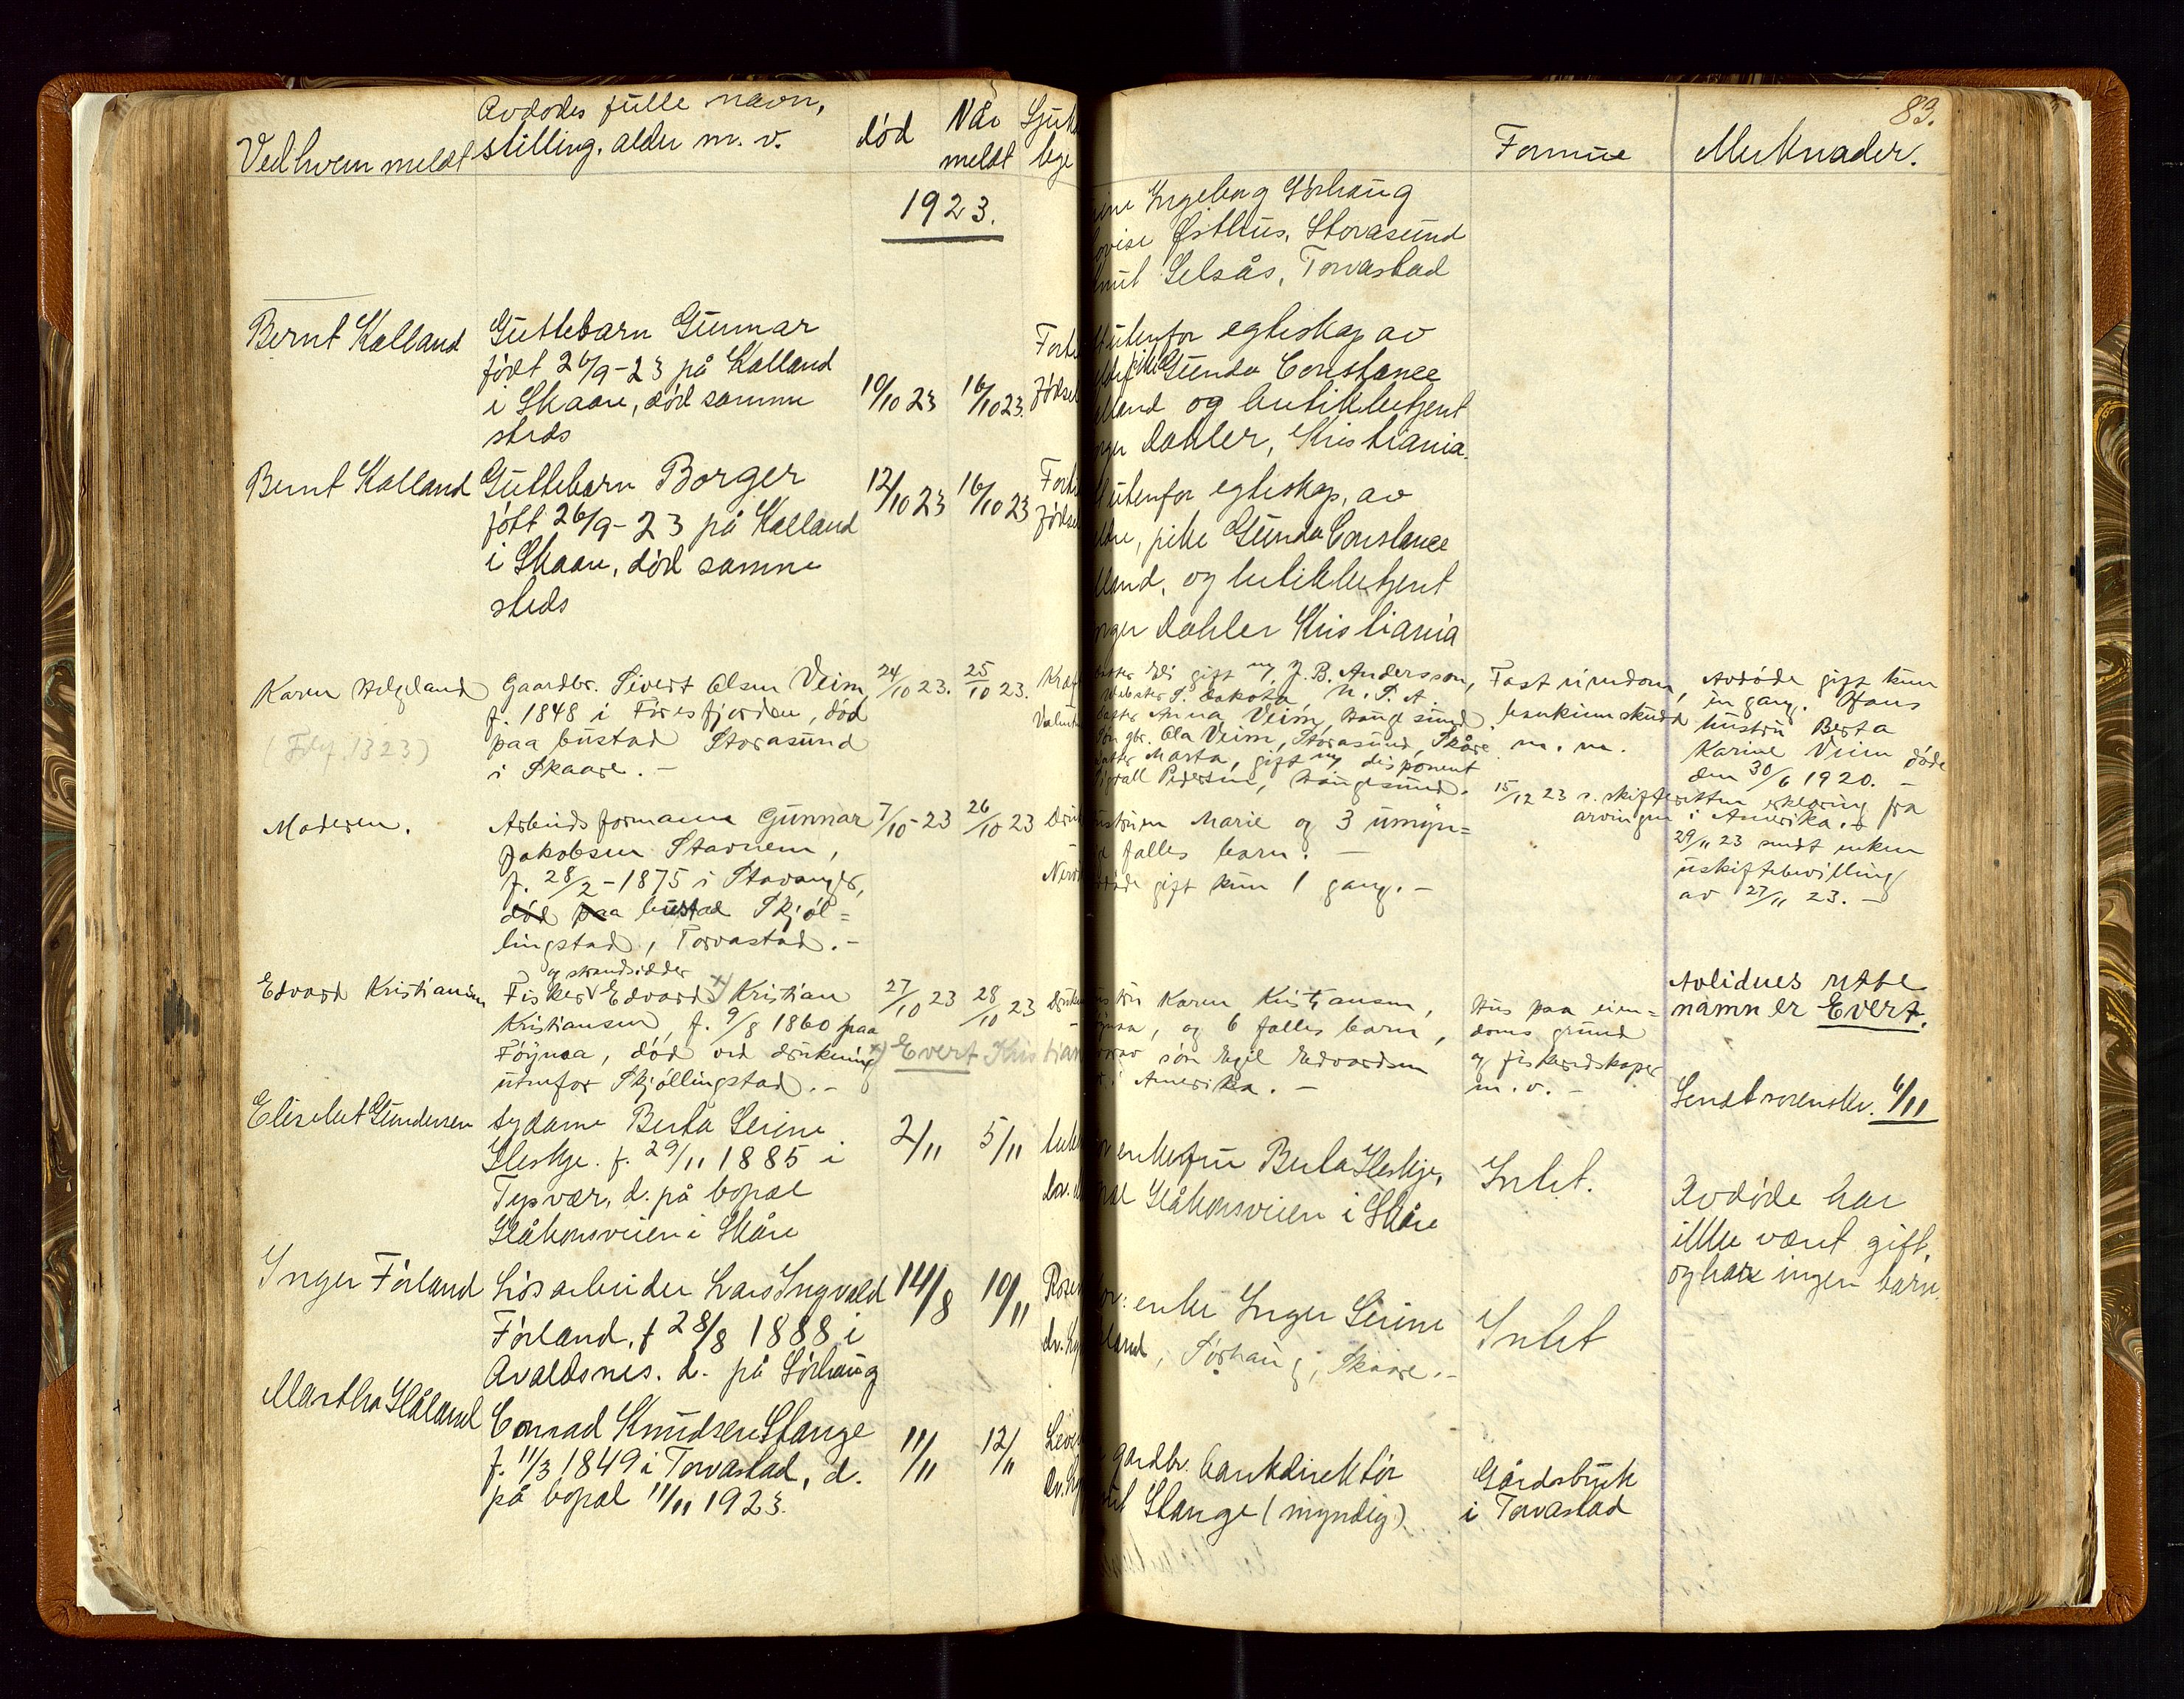 Ved hvem meldt
Avdødes fulle navn,
stilling, alder m. v.
død
Når
meldt
1923.
Bernt Kalland
Guttebarn Gunnar
født 26/9-23 på Kalland
i Skaare, død samme
steds
10/10 23
16/10 23.
Bernt Kalland
Guttebarn Borger
født 26/9-23 på Kalland
i Skaare, død samme
steds
12/10 23
16/10 23
Karen Helgeland
Gaardbr. Sivert Olsen Veim,
f. 1848 i Føresfjorden, død
paa bustad Storasund
i Skaare.-
24/10 23.
25/10 23.
Moderen.
Arbeidsformann Gunnar
Jakobsen Stavnem,
f. 28/2-1875 i Stavanger,
død paa bustad Skjøl=
lingstad, Torvastad.-
7/10-23
26/10 23
Edvard Kristiansen
og strandsidder
Fisker Edvard x) Kristian
Kristiansen, f. 9/8 1860 paa
Føynaa, død ved drukning
utenfor Skjøllingstad.-
27/10 23
28/10 23
x) Evert Kristian
Elisebet Gundersen
Sydame Berta Serine
Heskje. f. 29/11 1885 i
Tysvær, d. på bopæl
Håkonsveien i Skåre
2/11
5/11
Inger Førland
Løsarbeider Lars Ingvald
Førland, f 28/8 1888 i
Avaldsnes. d. på Sørhaug
14/8
10/11
Martha Håland
Conrad Knudsen Stange
f. 11/3 1849 i Torvastad, d.
på bopæl 11/11 1923.
11/11
12/11
83.
Formue
Merknader.
Ingeborg Sørhaug
Østhus, Storasund
Selsås, Torvastad
utenfor egteskap av
pike Gunda Constance
og butikkbetjent
Dahler, Kristiania.
utenfor egteskap, av
pike Gunda Constance
og butikkbetjent
Dahler Kristiania
gift m/ J. B. Andersson,
Webster S. Dakota N. S. A
Anna Veim, Haugesund
gbr. Ola Veim, Storasund, Skåre
Marta, gift m/ disponent
Pedersen, Haugesund.
Fast eiendom,
bankinnskudd
m. m.
Avdøde gift kun
en gang. Hans
hustru Berta
Karine Veim døde
den 30/6 1920. -
15/12 23 s. skifteretten erklæring fra
arvingen i Amerika.-
Marie og 3 umyn=
felles barn. -
gift kun 1 gang.-
29/11 23 sendt enken
uskiftebevilling
av 27/11 23. -
Karen Kristiansen,
og 6 felles barn,
søn Egil Edvardsen
i Amerika. -
Hus paa eien=
doms grund
og fiskeredskaper
m. v. -
Avlidnes rette
namn er Evert.
Sendt sorenskr. 6/11
Berta Heskje,
Håkonsveien i Skåre
Intet.
Avdøde har
ikke været gift,
og har ingen barn.
enke Inger Serine
Sørhaug, Skaare.-
Intet
gardbr. bankdirektør
Stange (myndig)
Gårdsbruk
i Torvastad